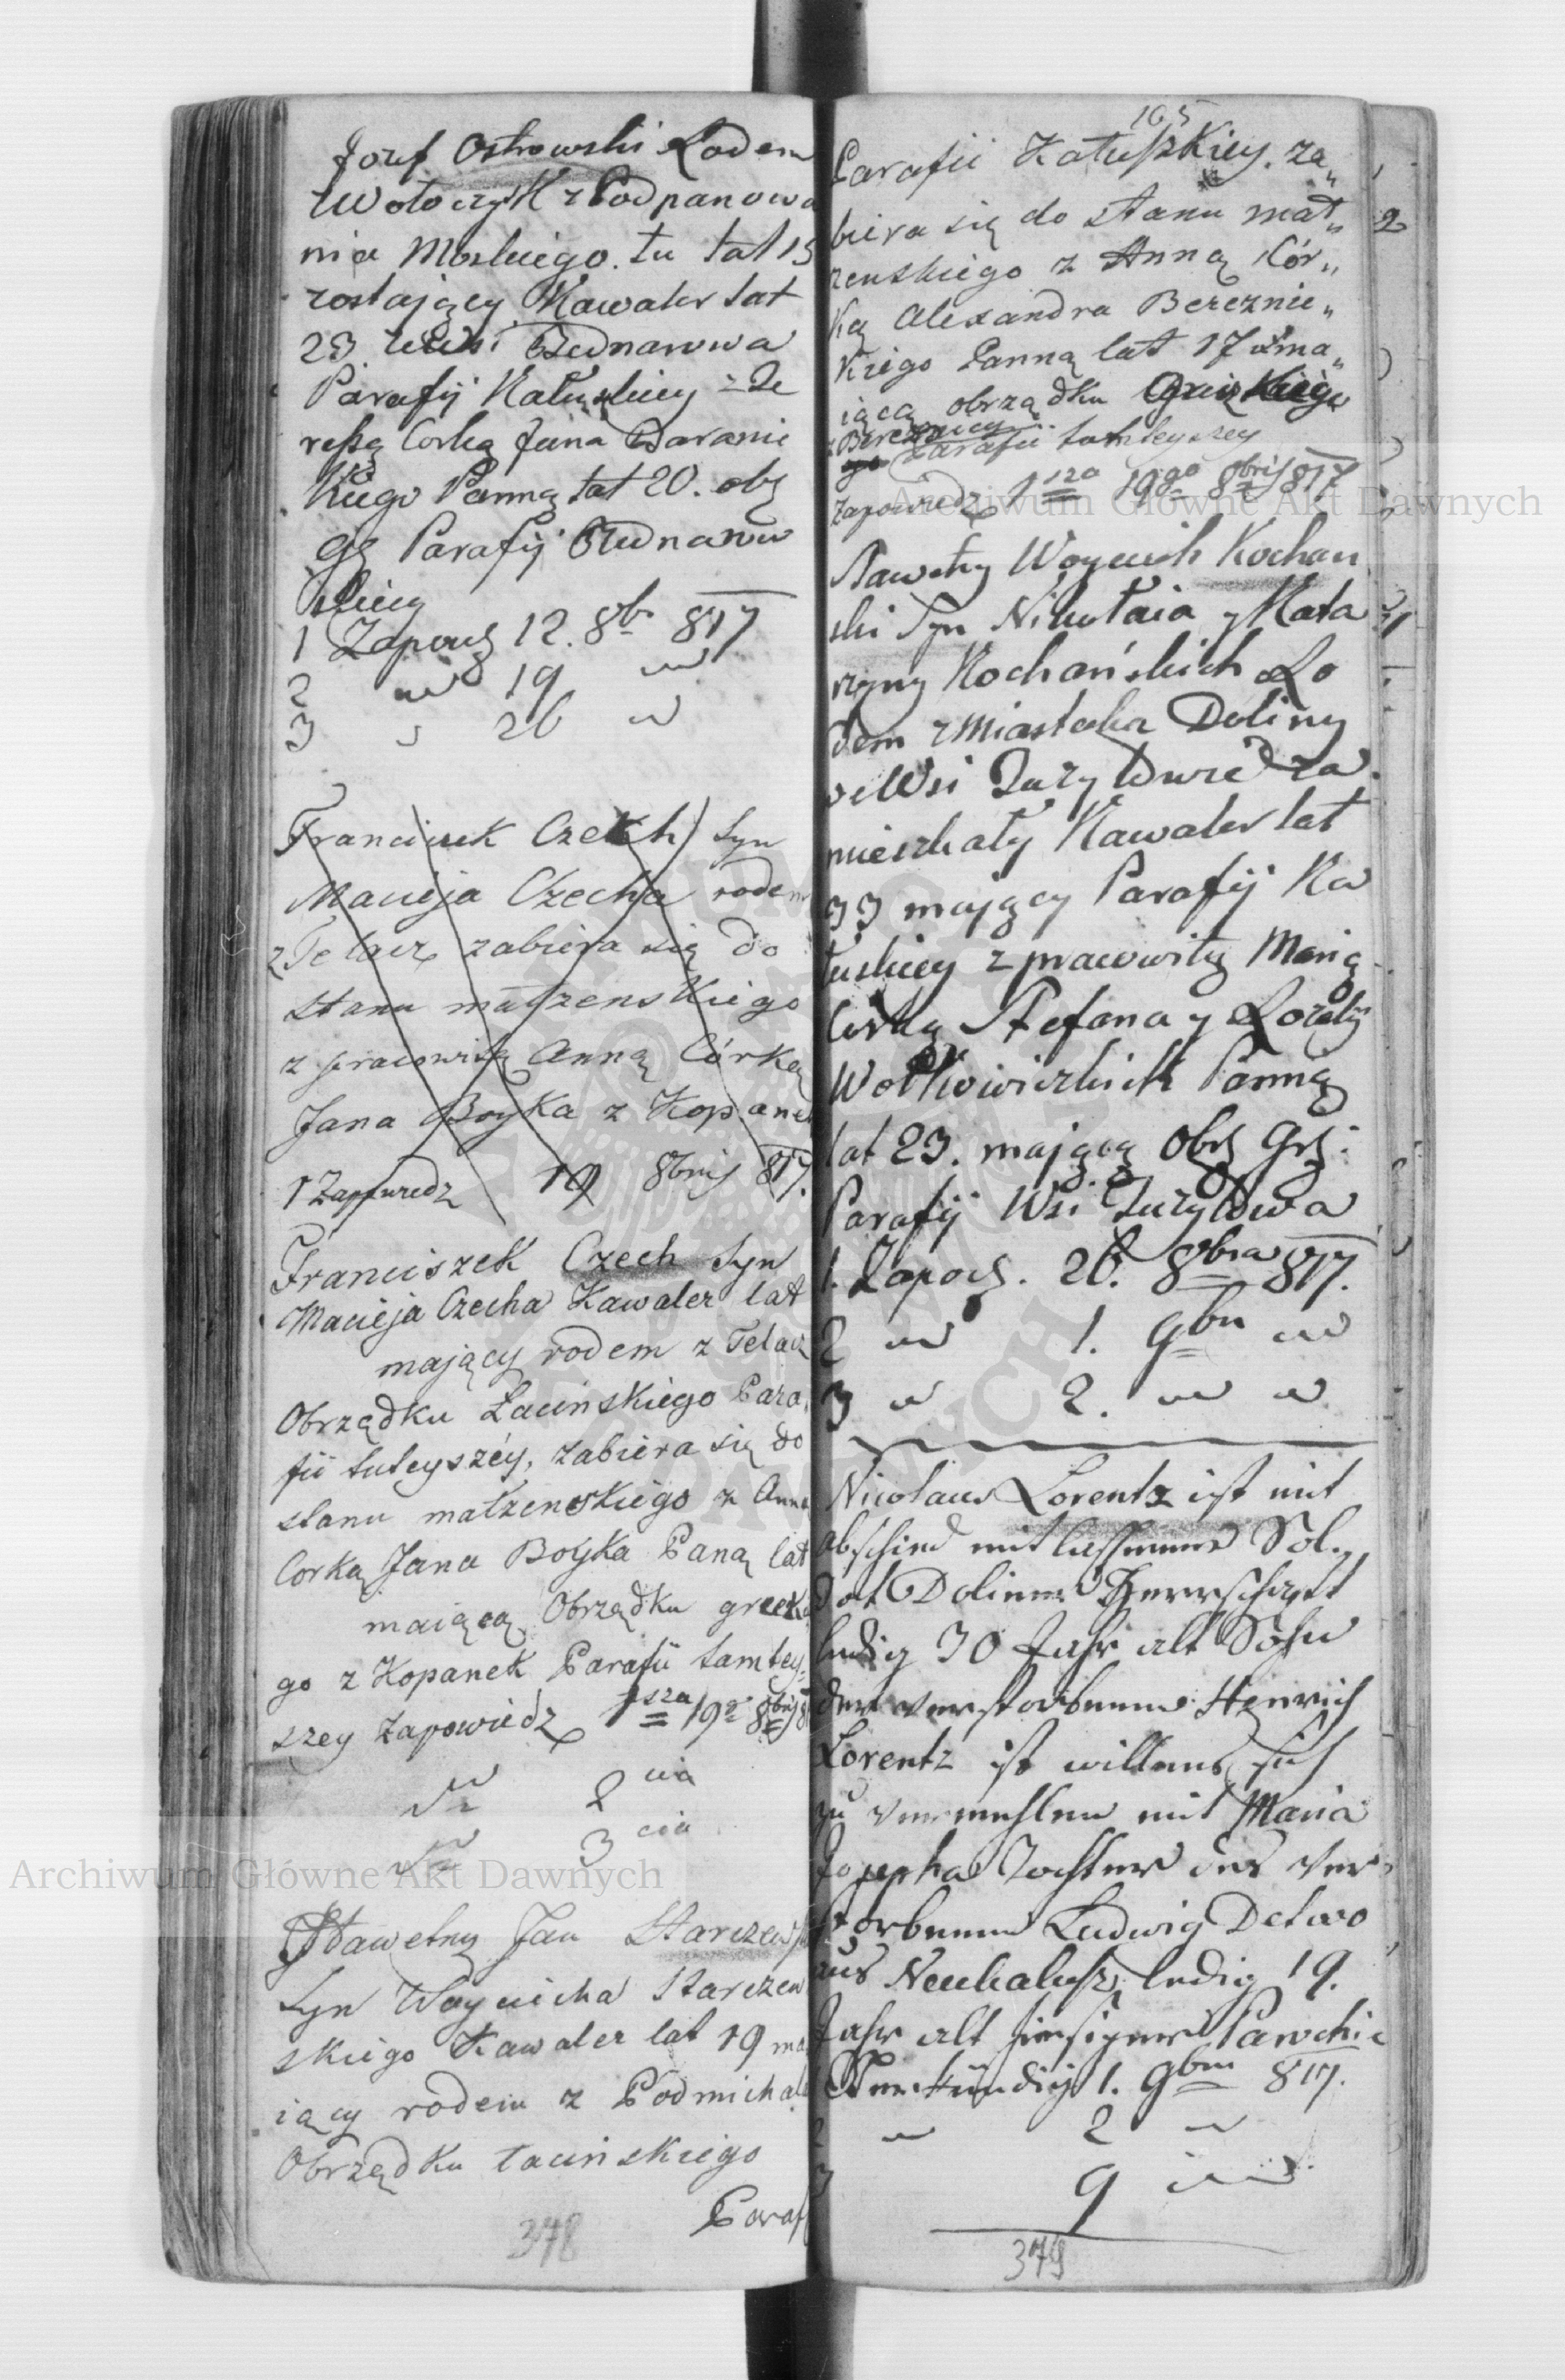 Jozef Ostrowski Rodem
z Wołoczysk z Podpanowa
nia Moskiego. tu lat 15
zostający Kawaler lat
23 Wsi Bednarowa
Parafij Kałuskiey z Te
reßą Corką Jana Baranie
kiego Panną lat 20. obż
Parafij Bednarow
skiey
1 Zapowż 12. 8br 817
2 " 19 "
3 " 26 "
Franciszek Czech Syn
Macieja Czecha rodem
z Pełacz zabiera się do
stanu małzenskiego
z pracowitą Anną Córką
Jana Boyka z Kopanek
1 Zapowiedz 19 8bris 817.
Franciszek Czech Syn
Macieja Czecha Kawaler lat
mający rodem z Telacz
Obrządku Łacinskiego Para
fii tuteyszéy, zabiera się do
stanu małzenskiego z Anna
Corką Jana Boyka Paną lat
maiącą Obrządku greck
go z Kopanek Parafii tamtey
szey Zapowiedz 1sza 19go 8bris 8
2 cia
3 cia
Sławetny Jan Starczews
Syn Woyciecha Starczew
skiego Kawaler lat 19 ma
iący rodem z Podmichal
Obrządku łacinskiego
Paraf
378
105
Parafii Kałuszkiey. za„
biera się do stanu mał„
zenskiego z Anną Cór„
ką Alexandra Bereznic„
kiego Panną lat 17 ma„
iącą obrządku Greckiego
z Bereznicy
Parafii tamteyszey
Zapowiedz 1sza 19go 8bris 817
Sławetny Woyciech Kochan
ski Syn Nikołaia y Kata
rzyny Kochańskich Ro
dem z Miasteczka Doliny
we Wsi za
mieszkały Kawaler lat
33 mający Parafij Ka
łuskiey z pracowitą Marią
Corką Stefana y Rozalij
Wołkowiczkich Panną
lat 23. mającą Obż Grż:
Parafij Wsi
1. Zapowż. 26. 8bra 817.
2 " 1. 9bra "
3 " 2. " "
Nicolaus Lorentz ist mit
abschied entlassener Sol„
dat Doliner Herrschaft
ledig 30 Jahr alt Sohn
der verstorbenen Heinrich
Lorentz ist willens sich
zu vermehlen mit Maria
Josepha Tochter des ver„
storbenen Ludwig Detwo
aus Neukalusz ledig 19.
Jahr alt hiesiger Parochie
Verkündig 1. 9ber 817.
2 " 2 "
3 9 "
379
2
Archiwum Główne Akt Dawnych
Archiwum Główne Akt Dawnych